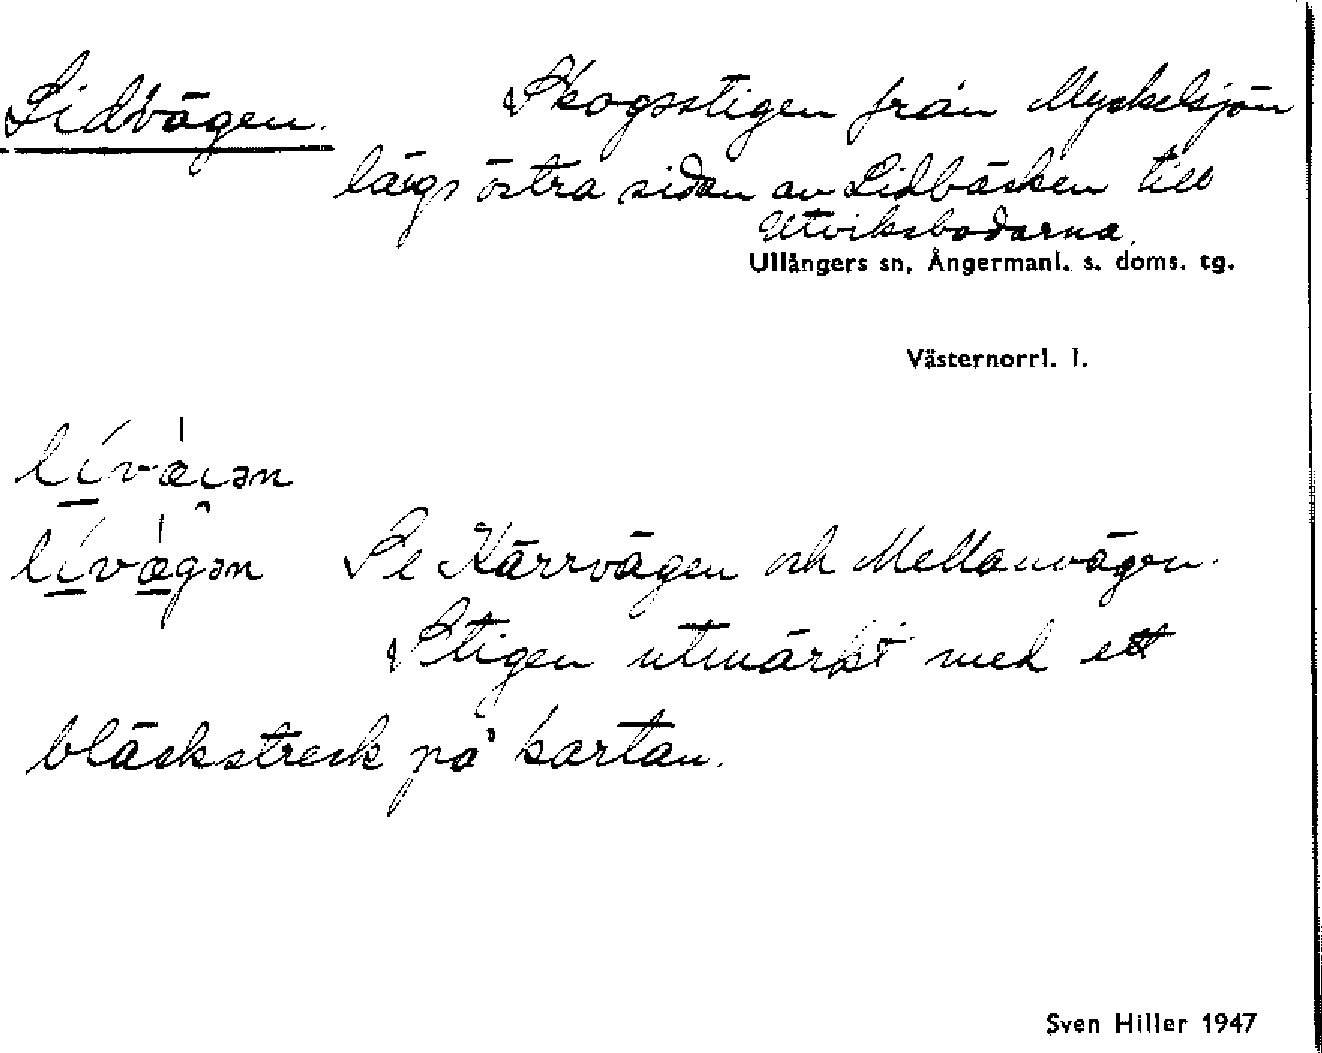 Lidvägen. Skogsstigen från Myckelsjön
längs östra sidan av Lidbäcken till
Utviksbodarna.
Ullångers sn, Ångermanl. s. doms. tg.
Västernorrl. l.
lívæ̀i̯ən
lívæ̀gən Se Kärrvägen och Mellanvägen.
Stigen utmärkt med ett
bläckstreck på kartan.
Sven Hiller 1947